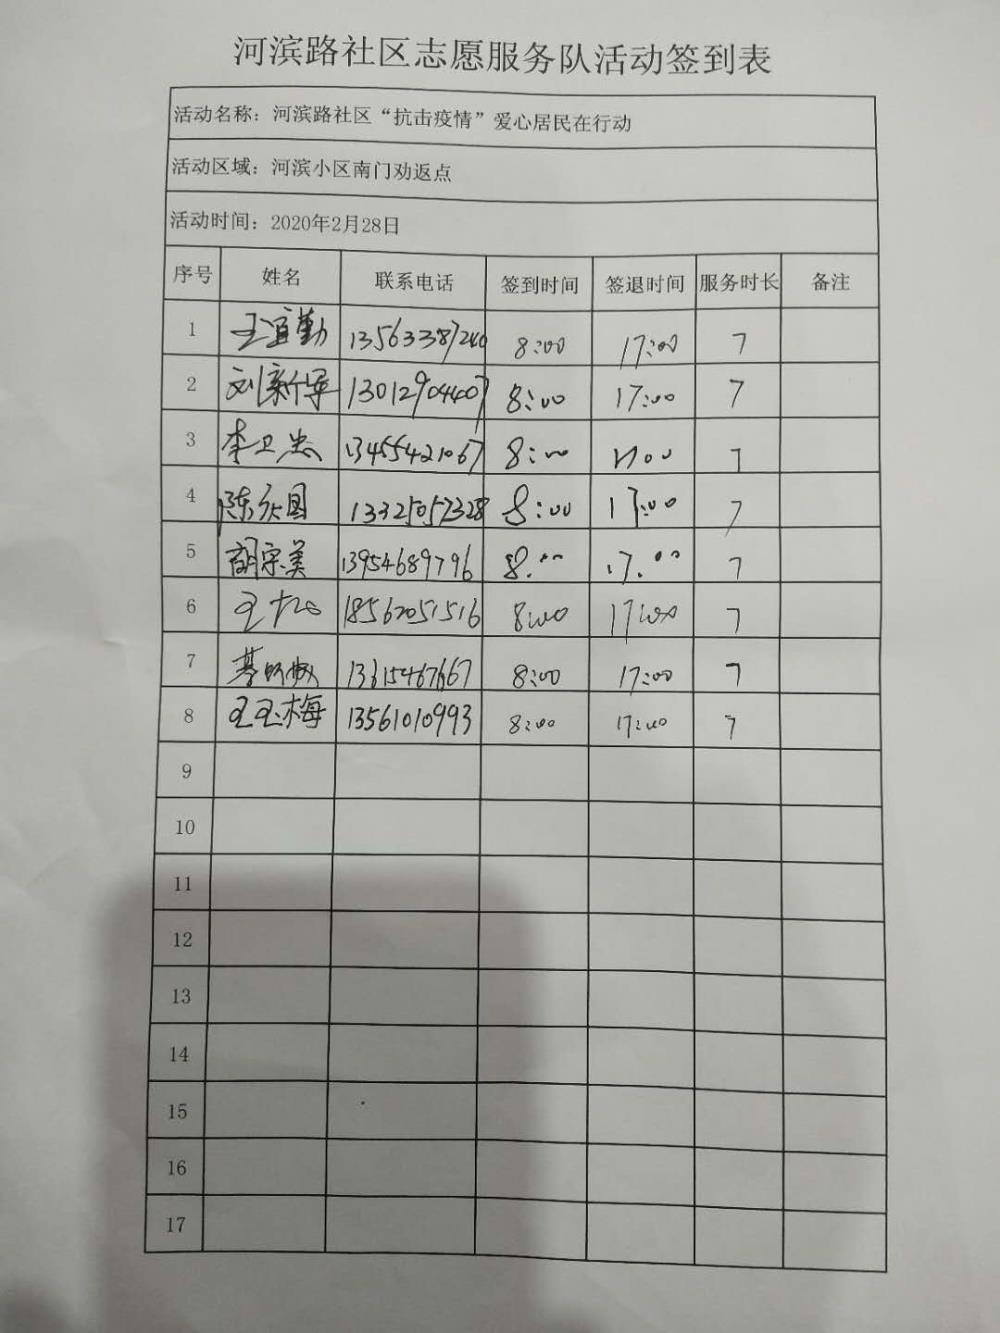 河滨路社区志愿服务队活动签到表
活动名称：河滨路社区“抗击疫情”爱心居民在行动
活动区域：河滨小区南门劝返点
活动时间：2020年2月28日
序号 姓名 联系电话 签到时间 签退时间 服务时长 备注
1 王宜勤 13563387240 8:00 17:00 7
2 刘新军 13012904407 8:00 17:00 7
3 李卫忠 13455421067 8:00 17:00 7
4 陈庆国 13325057328 8:00 17:00 7
5 胡宗美 13954689796 8:00 17:00 7
6 王 18562051516 8:00 17:00 7
7 13615467667 8:00 17:00 7
8 王玉梅 13561010993 8:00 17:00 7
9
10
11
12
13
14
15
16
17